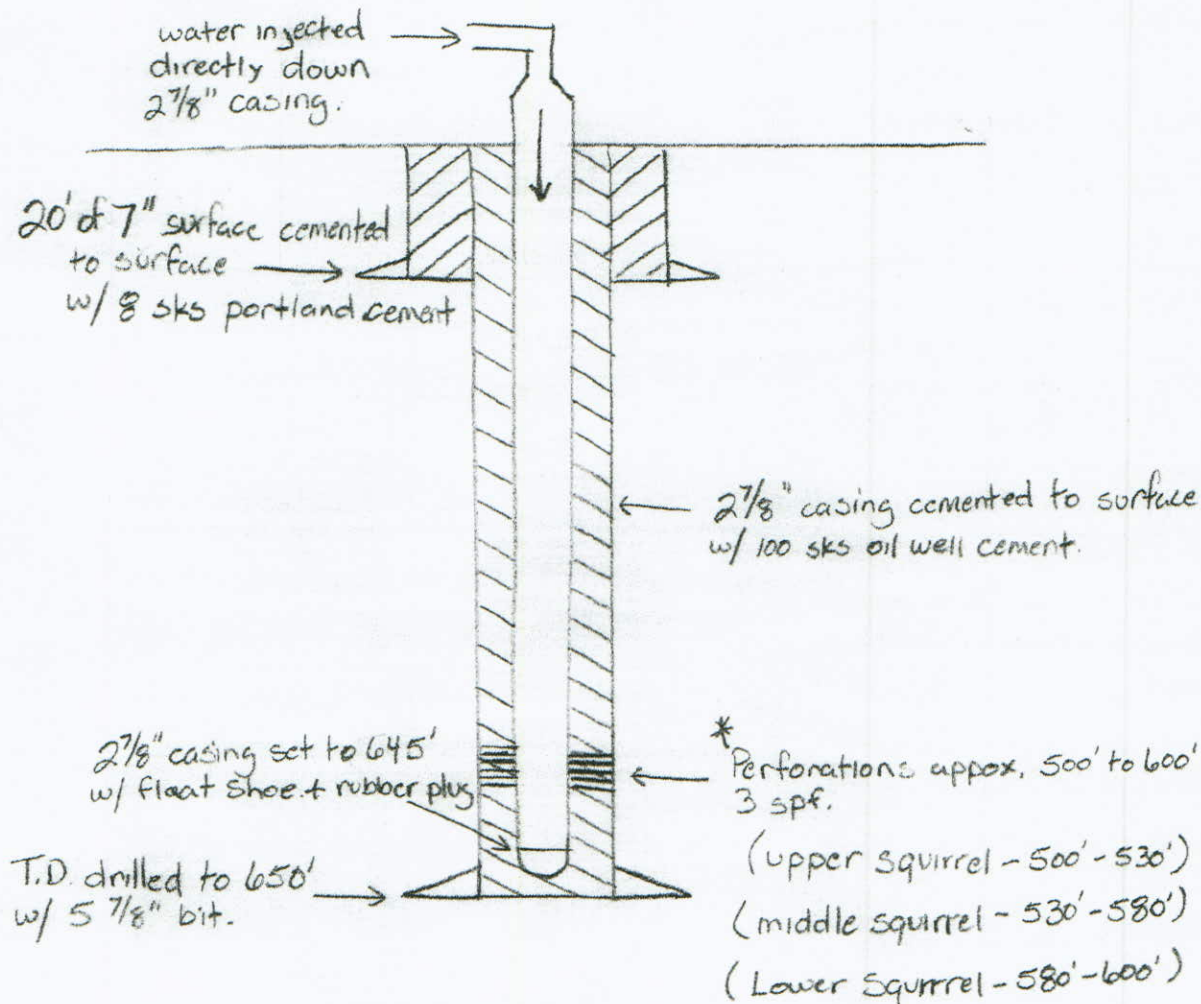 water injected
directly down
2 7/8" casing.
20' of 7" surface cemented
to surface
w/ 8 sks portland cement
2 7/8" casing cemented to surface
w/ 100 sks oil well cement.
2 7/8" casing set to 645'
w/ float shoe + rubber plug
*
Perforations appox. 500' to 600'
3 spf.
(upper squirrel - 500' - 530')
(middle squirrel - 530' - 580')
(Lower Squrrrel - 580' - 600')
T.D. drilled to 650'
w/ 5 7/8" bit.